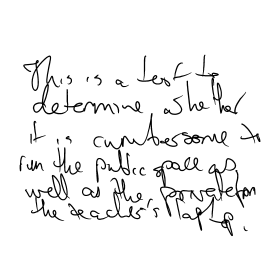 This is a test to
determine whether
it is cumbersome to
run the public space as
well as the private from
the teacher's laptop.